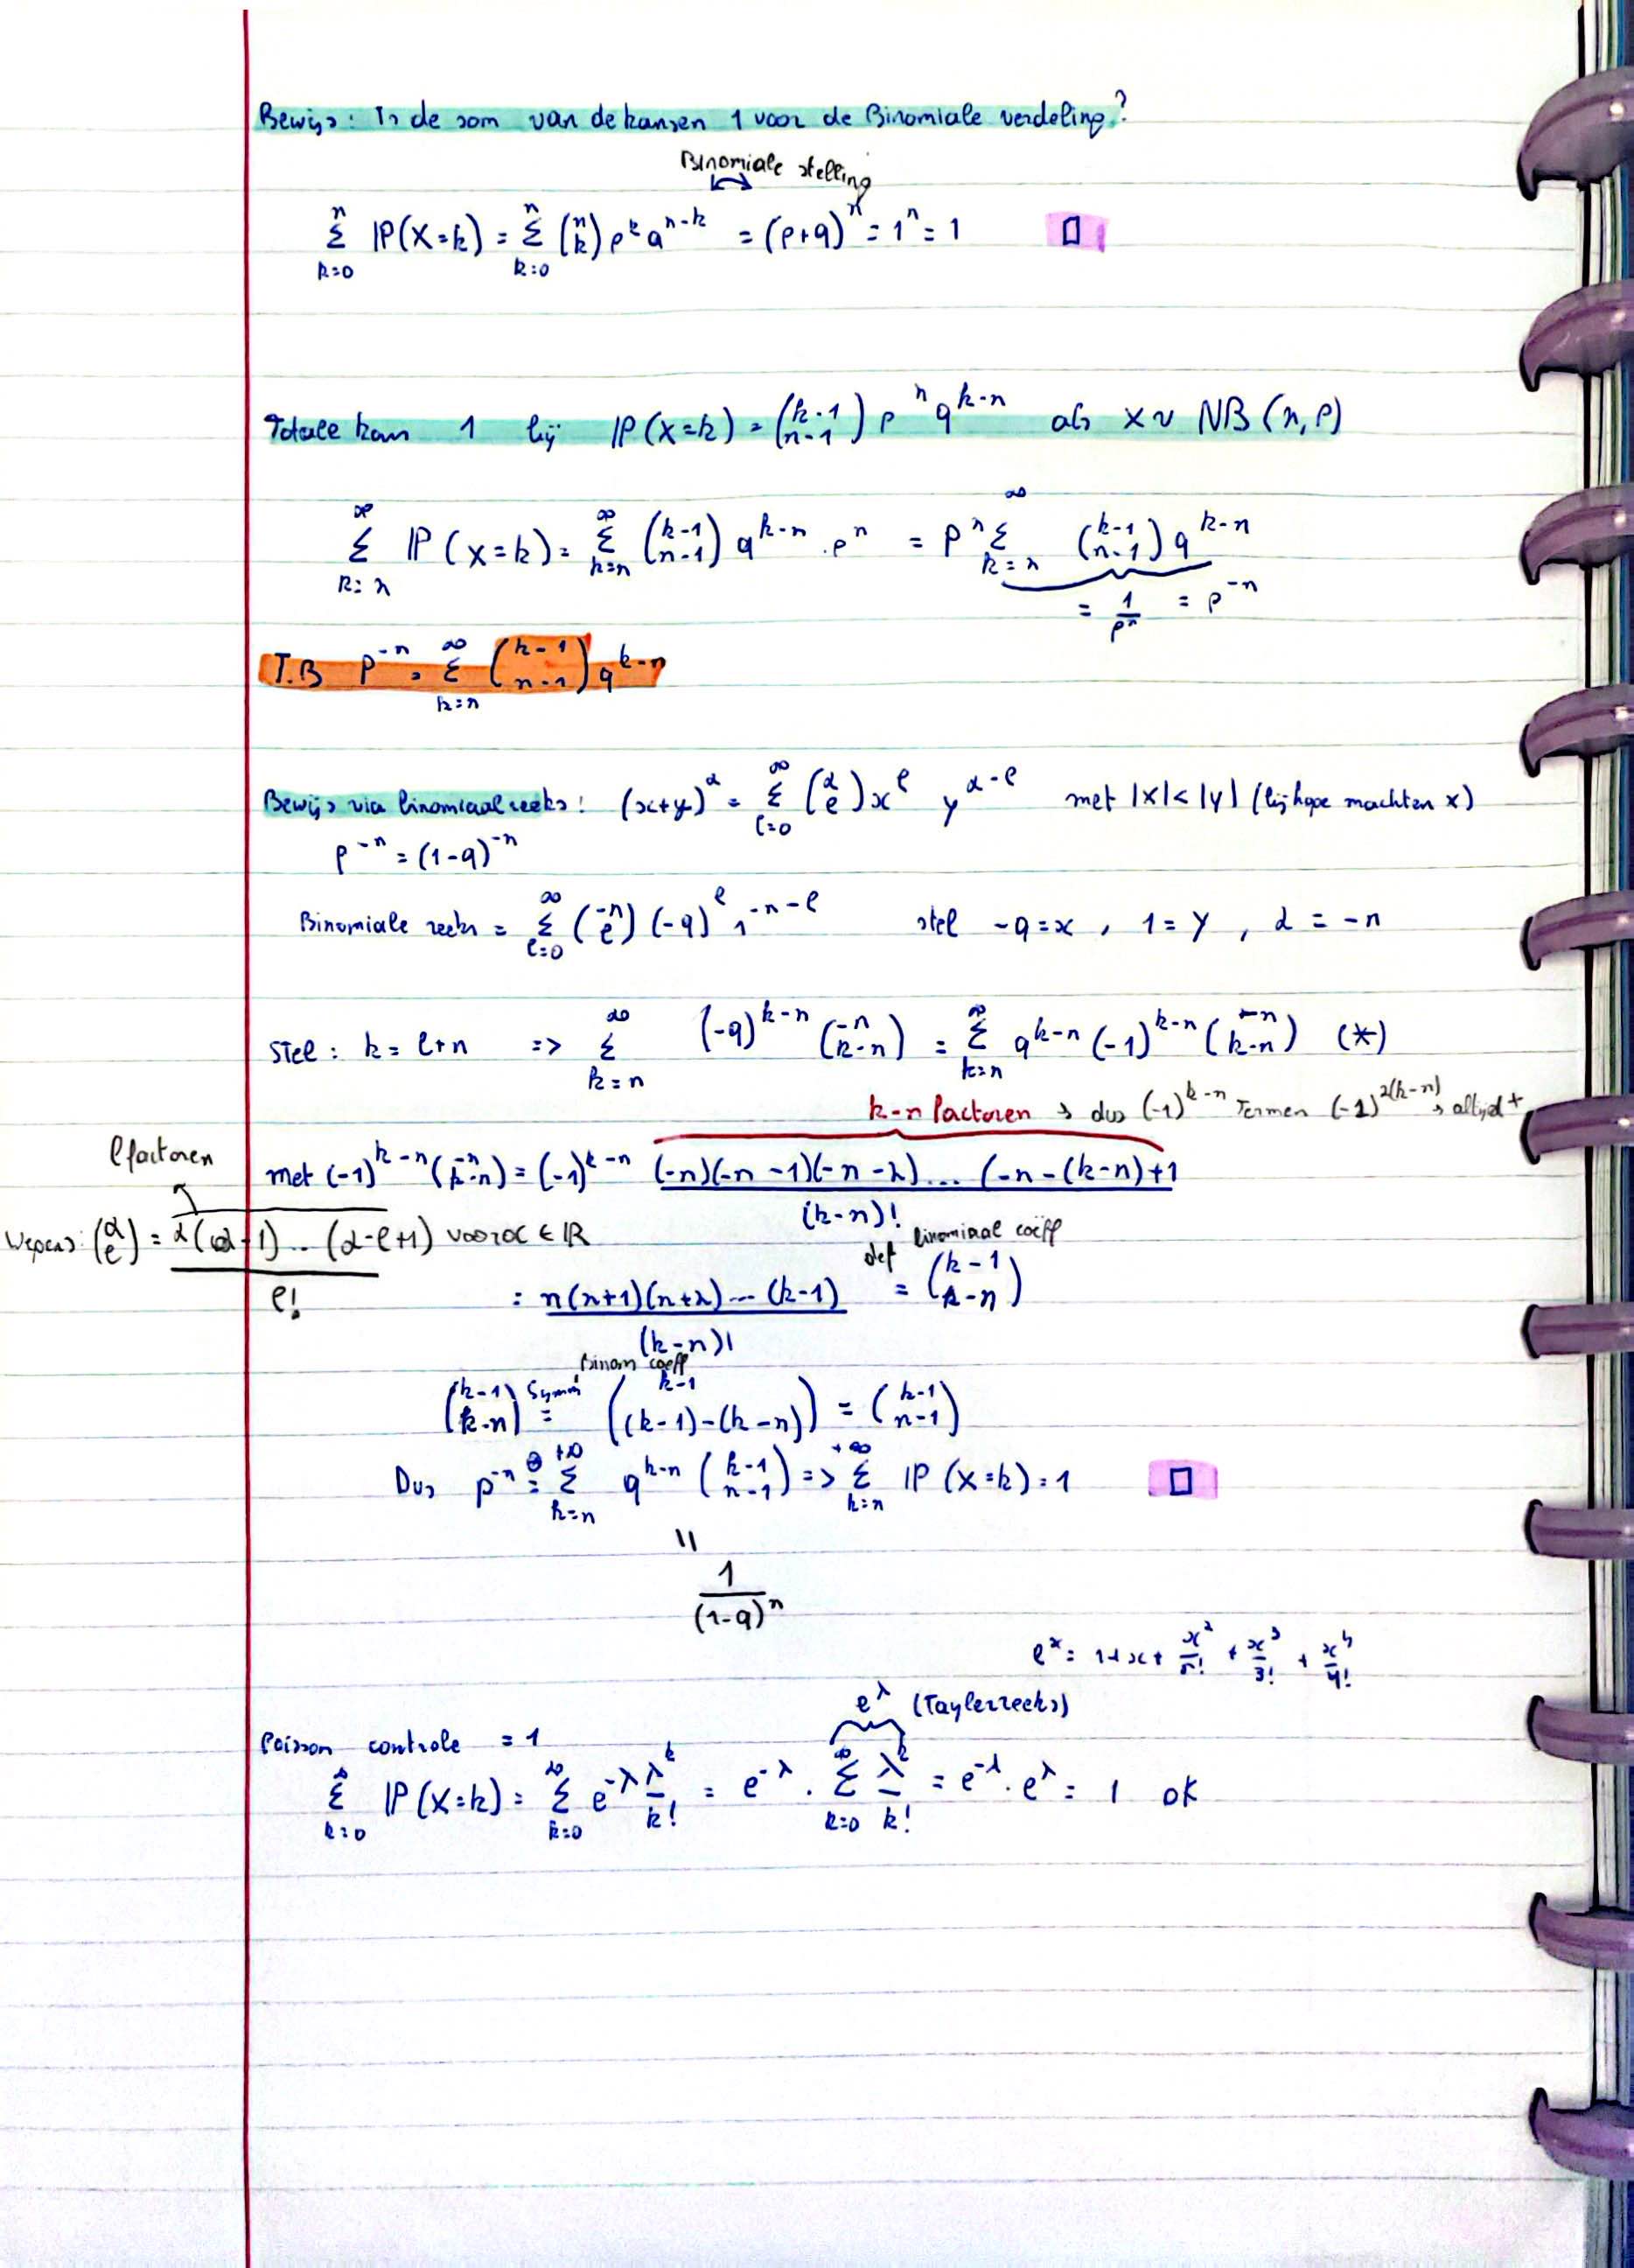 Bewijs: Is de som van de kansen 1 voor de Binomiale verdeling?
Binomiale stelling
∑_{k=0}^{n} ℙ(X=k) = ∑_{k=0}^{n} (n k) p^k q^{n-k} = (p+q)^n = 1^n = 1 □
Totale kans 1 bij ℙ(X=k) = (k-1 n-1) p^n q^{k-n} als X ~ NB(n,p)
∑_{k=n}^{∞} ℙ(X=k) = ∑_{k=n}^{∞} (k-1 n-1) q^{k-n} . p^n = p^n ∑_{k=n}^{∞} (k-1 n-1) q^{k-n}
= 1/p^n = p^{-n}
T.B p^{-n} = ∑_{k=n}^{∞} (k-1 n-1) q^{k-n}
Bewijs via binomiaalreeks: (x+y)^α = ∑_{l=0}^{∞} (α l) x^l y^{α-l} met |x|<|y| (bij hoge machten x)
p^{-n} = (1-q)^{-n}
Binomiale reeks = ∑_{l=0}^{∞} (-n l) (-q)^l 1^{-n-l} stel -q=x , 1=y , α = -n
Stel: k = l+n => ∑_{k=n}^{∞} (-q)^{k-n} (-n k-n) = ∑_{k=n}^{∞} q^{k-n} (-1)^{k-n} (-n k-n) (*)
k-n factoren → dus (-1)^{k-n} Termen (-1)^{2(k-n)} → altijd +
l factoren
met (-1)^{k-n} (-n k-n) = (-1)^{k-n} (-n)(-n-1)(-n-2)...(-n-(k-n)+1 / (k-n)!
(α l) = α(α-1)...(α-l+1) / l! voor α ∈ ℝ
def binomiaal coëff
= n(n+1)(n+2)...(k-1) / (k-n)! = (k-1 k-n)
Binom coeff
(k-1 k-n) Symm = (k-1 (k-1)-(k-n)) = (k-1 n-1)
Dus p^{-n} = ∑_{k=n}^{+∞} q^{k-n} (k-1 n-1) => ∑_{k=n}^{+∞} ℙ(X=k) = 1 □
||
1/(1-q)^n
e^x = 1+x+ x^2/2! + x^3/3! + x^4/4!
e^λ (Taylerreeks)
Poisson controle = 1
∑_{k=0}^{∞} ℙ(X=k) = ∑_{k=0}^{∞} e^{-λ} λ^k/k! = e^{-λ} . ∑_{k=0}^{∞} λ^k/k! = e^{-λ} . e^λ = 1 ok